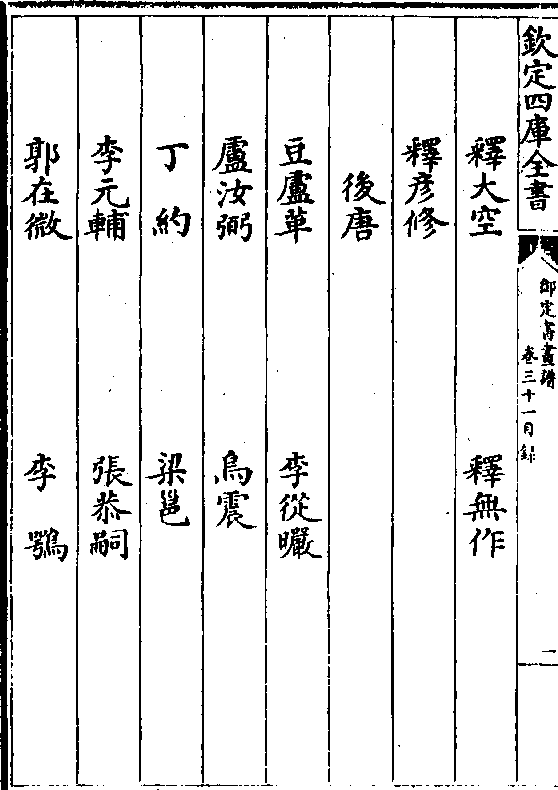 欽定四庫全書
御定書畫譜 卷三十一目録 二
釋大空 釋無作
釋彦修
後唐
豆盧革 李從曮
盧汝弼 烏震
丁約 梁邕
李元輔 張恭嗣
郭在微 李鶚